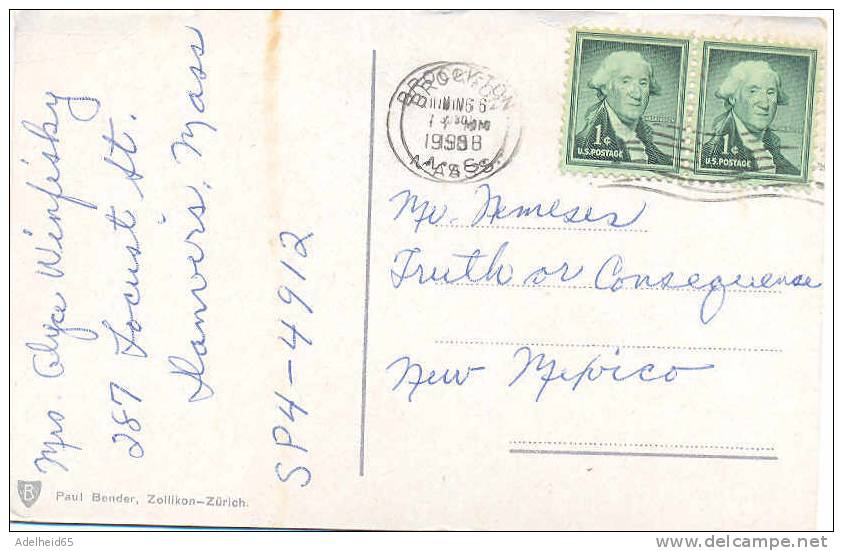 Mrs. Alyce Winfisky
287 Locust St.
Danvers, Mass
SP4-4912
B
Paul Bender, Zollikon–Zürich.
BROCKTON
1958
MASS.
1¢
U.S. POSTAGE
1¢
U.S. POSTAGE
Mr. Nemeses
Truth or Consequense
New Mexico
Adelheid65
www.delcampe.net